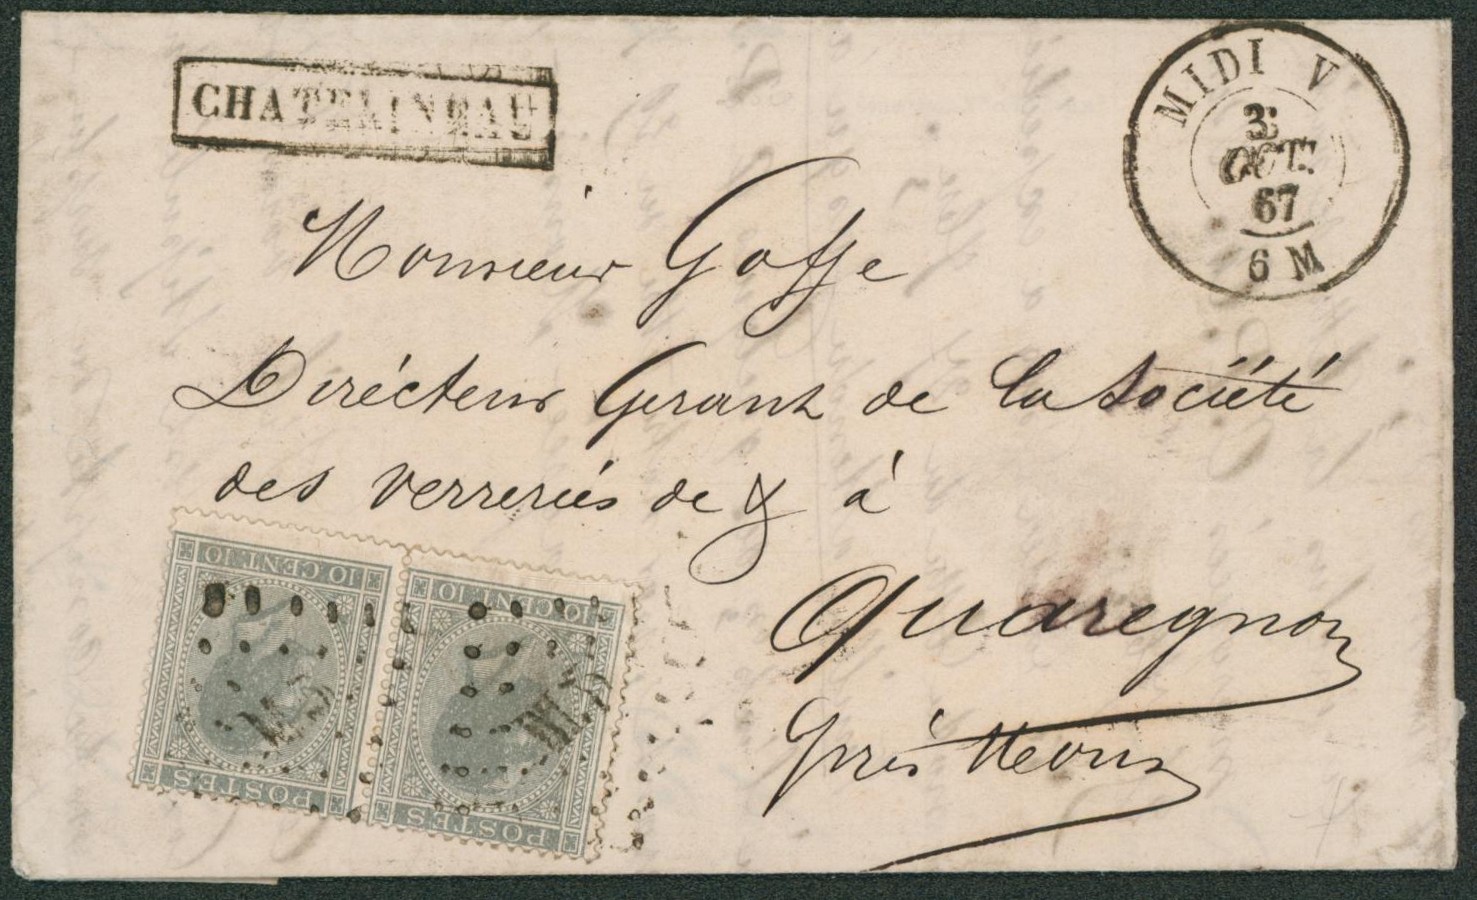 CHATELINEAU
MIDI V
3
OCT.
67
6 M
Monsieur Goffe
Dirécteur Gerant de la Société
des verreries de & à
Quaregnon
près Mons
10 CENT. 10
10 CENT. 10
POSTES
POSTES